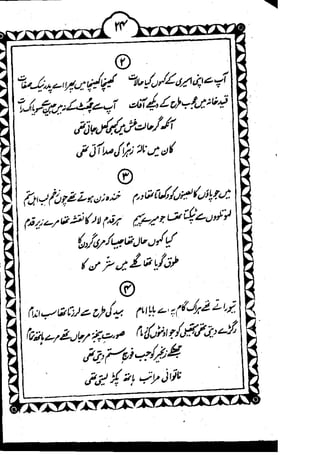 ۲۴
۲
آپ سے اپنی اسیری کے کہوں کیا حالات کھینچا کھینچا میں پھرا اے پدر نیک صفات
قید خانہ میں عجب طرح کے دیکھے آفات آپ سے چھٹ کے نہ میں چین سے سویا اک رات
آنکھ گر حالت غش میں کبھی کھل جاتی تھی
کان میں نالۂ زہرا کی صدا آتی تھی
۳
میں جو پاؤں کا لعینوں کو دکھاتا تھا ورم خندہ زن ہوتے تھے جوں زخم لب اہل ستم
لہو تلووں سے ٹپکتا تھا جو میرے پیہم ہر قدم لالہ کا نقشہ تھا مرے زیر قدم
کیا کہوں حال تھا جیسا کہ مری گردن کا
طوق گویا تھا گلے میں ستر من کا
۴
تیورائے تھے ہر اک گام پہ بابا مام بید کی طرح سے لرزتا تھا سب اندام
رگڑے دیتی تھی ہتھیلی کو جو اونٹوں کی زمام صورت پنجۂ مرجاں تھے مرے ہاتھ تمام
جھٹکے زنجیر کو جب فوج ستم دیتی تھی
ناتوانی مرا تب ہاتھ پکڑ لیتی تھی